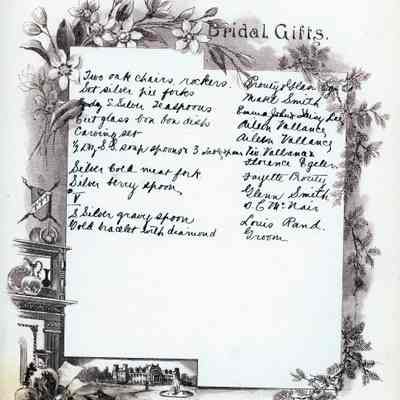 Bridal Gifts.
Two oak chairs, rockers. Prouty & Glass
Set silver pie forks Maue Smith
S. Silver Teaspoons Emma John & Daisy Lee
Cut glass bon bon dish Aileen Vallance
Carving set Aileen Vallance
½ Dz S.S. soup spoons & 3 Vallance
Silver Cold meat fork Florence
Silver berry spoon Fayette Prouty
V Glenn Smith
D. C. McNair
S Silver gravy spoon Louis Rand.
Gold bracelet with diamond Groom